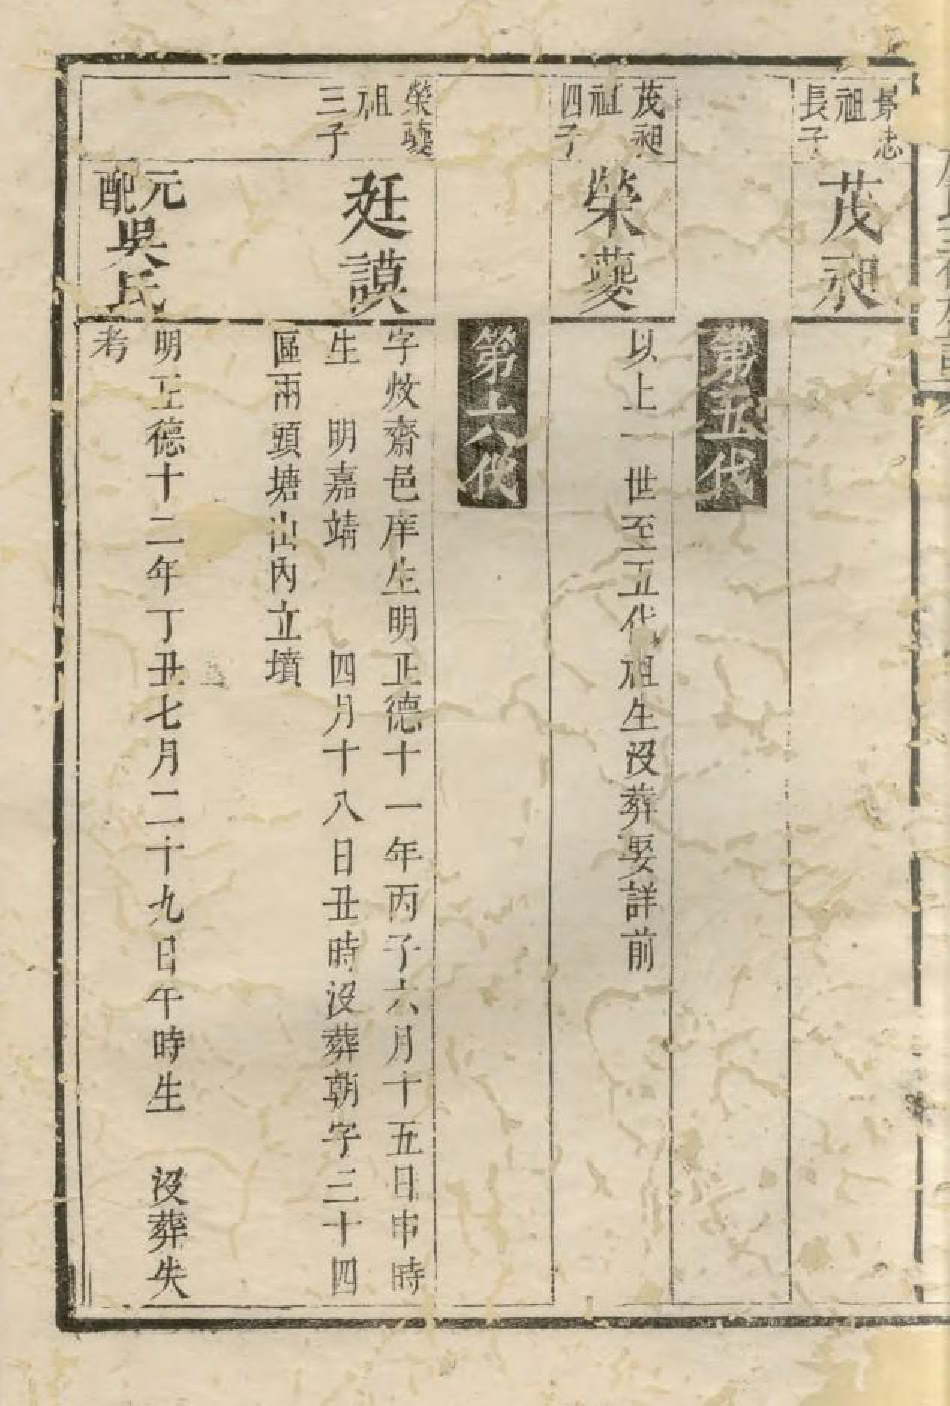 祖長子
茂昶
第五代
茂昶祖四子
榮夔
以上一世至五代祖生沒葬娶詳前
第六代
榮夔祖三子
廷謨
字炇齋邑庠生明正德十一年丙子六月十五日申時
生 明嘉靖 四月十八日丑時沒葬朝字三十四
區兩頭塘山內立墳
元配吳氏
明正德十二年丁丑七月二十九日午時生 沒葬失
考